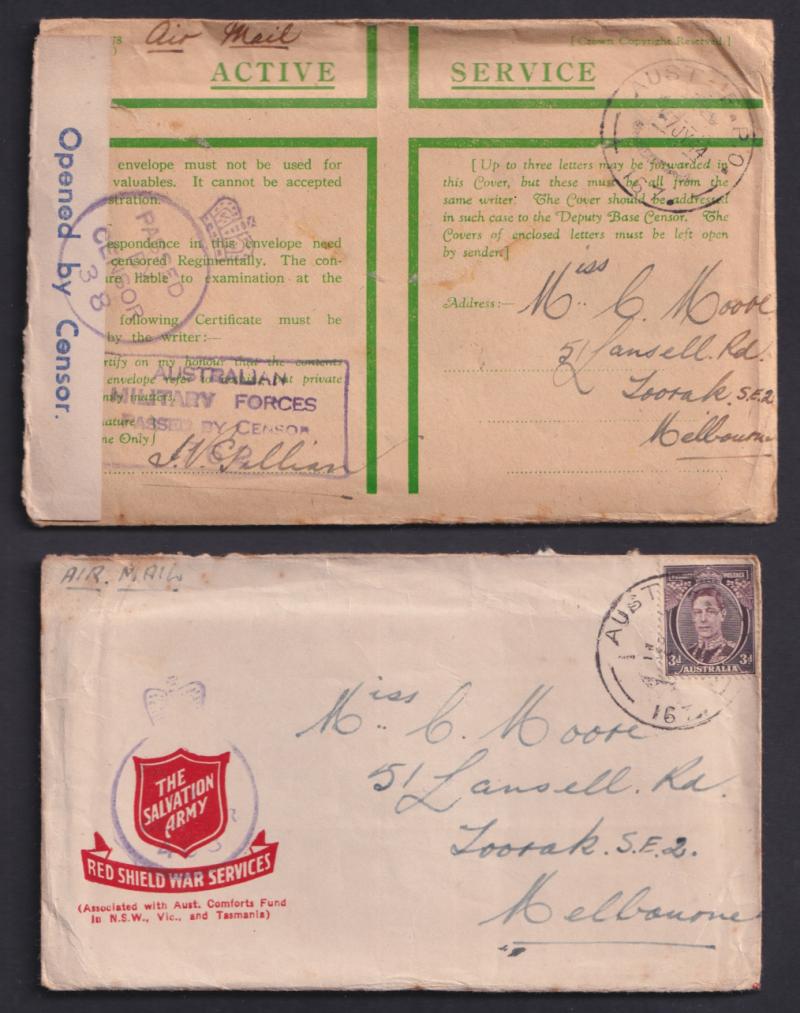 78
Air Mail
[Crown Copyright Reserved.]
ACTIVE SERVICE
AUST. F.P.O.
Opened by Censor.
envelope must not be used for
valuables. It cannot be accepted
stration.
espondence in this envelope need
censored Regimentally. The con-
are liable to examination at the
following Certificate must be
by the writer:—
ertify on my honour that the contents
envelope refer to nothing but private
family matters.
nature
me Only}
PASSED
CENSOR
38
AUSTRALIAN
MILITARY FORCES
PASSED BY CENSOR
[Up to three letters may be forwarded in
this Cover, but these must be all from the
same writer: The Cover should be addressed
in such case to the Deputy Base Censor. The
Covers of enclosed letters must be left open
by sender.]
Address:—
Miss C. Moore
51 Lansell. Rd.
Toorak. S.E.2
Melbourne
AIR. MAIL
AUST
167
POSTAGE
3d 3d
AUSTRALIA
Miss C. Moore
51 Lansell. Rd.
Toorak. S.E.2.
Melbourne
THE
SALVATION
ARMY
RED SHIELD WAR SERVICES
(Associated with Aust. Comforts Fund
in N.S.W., Vic., and Tasmania)